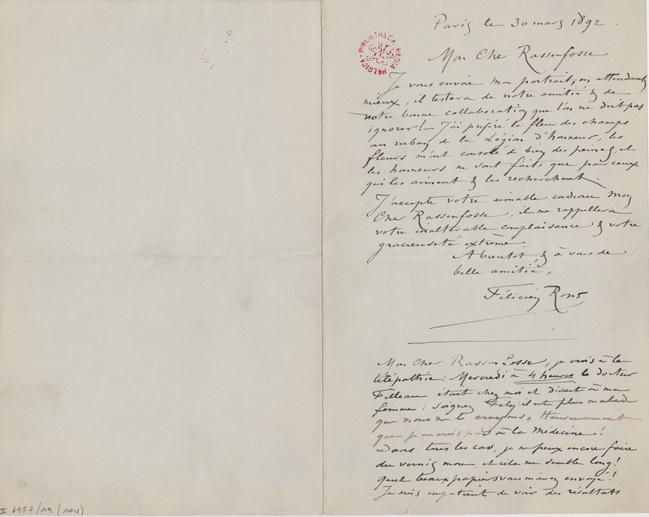 Paris le 30 mars 1892.
BIBLIOTHECA REGIA BELGICA
Mon Cher Rassenfosse
Je vous envoie mon portrait, en attendant
mieux, il testera de notre amitié & de
notre bonne collaboration que l'on ne doit pas
ignorer! J'ai préféré la fleur des champs
au ruban de la Légion d'honneur, les
fleurs m'ont consolé de bien des peines et
les honneurs ne sont faits que pour ceux
qui les aiment & les recherchent.
J'accepte votre aimable cadeau Mon
Cher Rassenfosse, il me rappellera
votre inaltérable complaisance & votre
gracieuseté extrême.
A bientôt & à vous de
belle amitié,
Félicien Rops
Mon Cher Rassenfosse, je crois à la
télépathie: Mercredi à 4 heures le docteur
Filleau était chez moi et disait à ma
femme: soignez Fély, il est plus malade
que nous ne le croyons. Heureusement
que je ne crois pas à la Médecine!
Dans tous les cas, je ne peux encore faire
du vernis mou et cela me semble long!
quels beaux papiers vous m'avez envoyé!
Je suis impatient de voir des résultats
II 6957/19 (104)